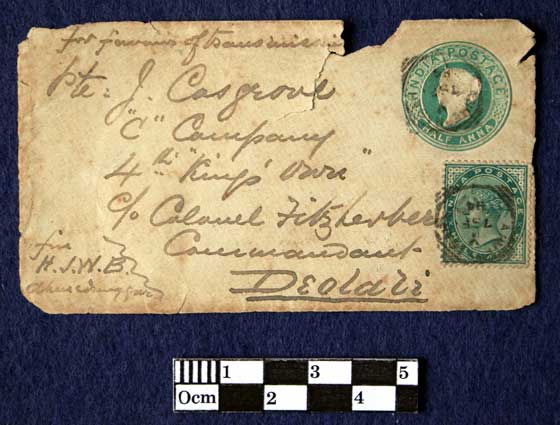 for favour of transmission
Pte: J. Cosgrove
"C" Company
4th "King's Own"
c/o Colonel Fitzherbert
Commandant
Deolali
for
H.J.W.B.
INDIA POSTAGE
HALF ANNA
INDIA POSTAGE
1
3
5
0cm
2
4